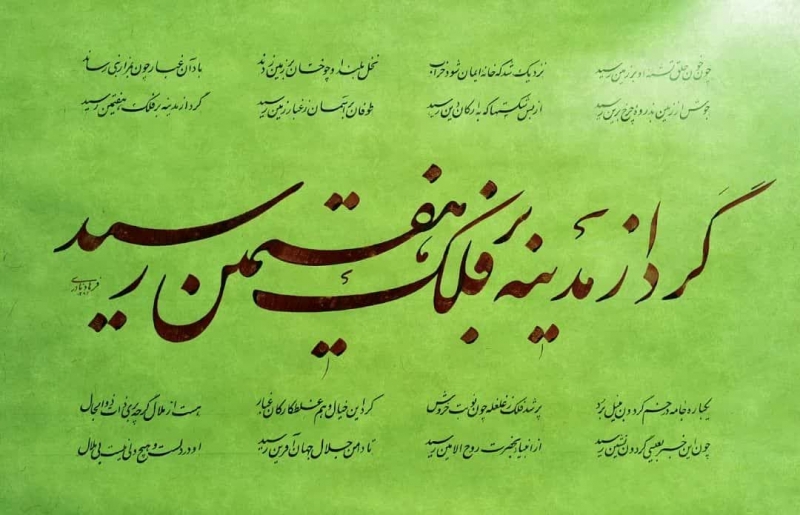 چون خون ز حلق تشنه او بر زمین رسید
جوش از زمین بذروه چرخ برین رسید
نزدیک شد که خانه ایمان شود خراب
از بس شکستها که به ارکان دین رسید
نخل بلند او چو خسان بر زمین زدند
طوفان بر آسمان ز غبار زمین رسید
باد آن غبار چون بمزار نبی رساند
گرد از مدینه بر فلک هفتمین رسید
گرد از مدینه بر فلک هفتمین رسید
یکباره جامه در خم گردون به نیل زد
چون این خبر بعیسی گردون نشین رسید
پر شد فلک ز غلغله چون نوبت خروش
از انبیا بحضرت روح الامین رسید
کرد این خیال وهم غلط کار کان غبار
تا دامن جلال جهان آفرین رسید
هست از ملال گرچه بری ذات ذوالجلال
او در دلست و هیچ دلی نیست بی ملال